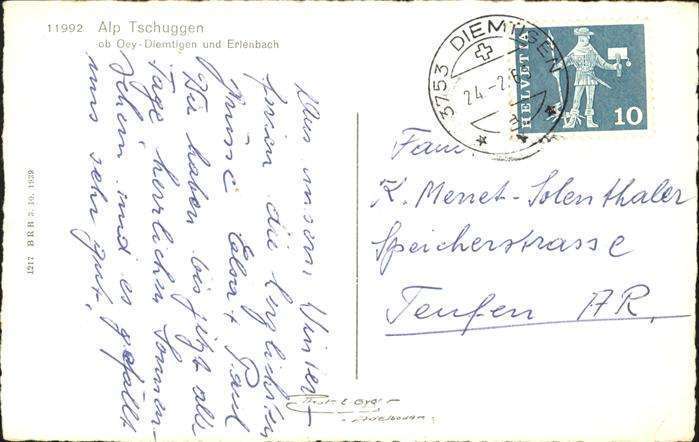 11992 Alp Tschuggen
ob Oey-Diemtigen und Erlenbach
Aus unsern Winter-
ferien die herzlichsten
Grüsse Elsa + Paul
Wir haben bis jetzt alle
Tage herrlichen Sonnen-
schein und es gefällt
uns sehr gut.
1217 BRB 3. 10. 1939
3753 DIEMTIGEN
24.-2.6
HELVETIA
10
Fam.
K. Menet-Solenthaler
Speicherstrasse
Teufen AR.